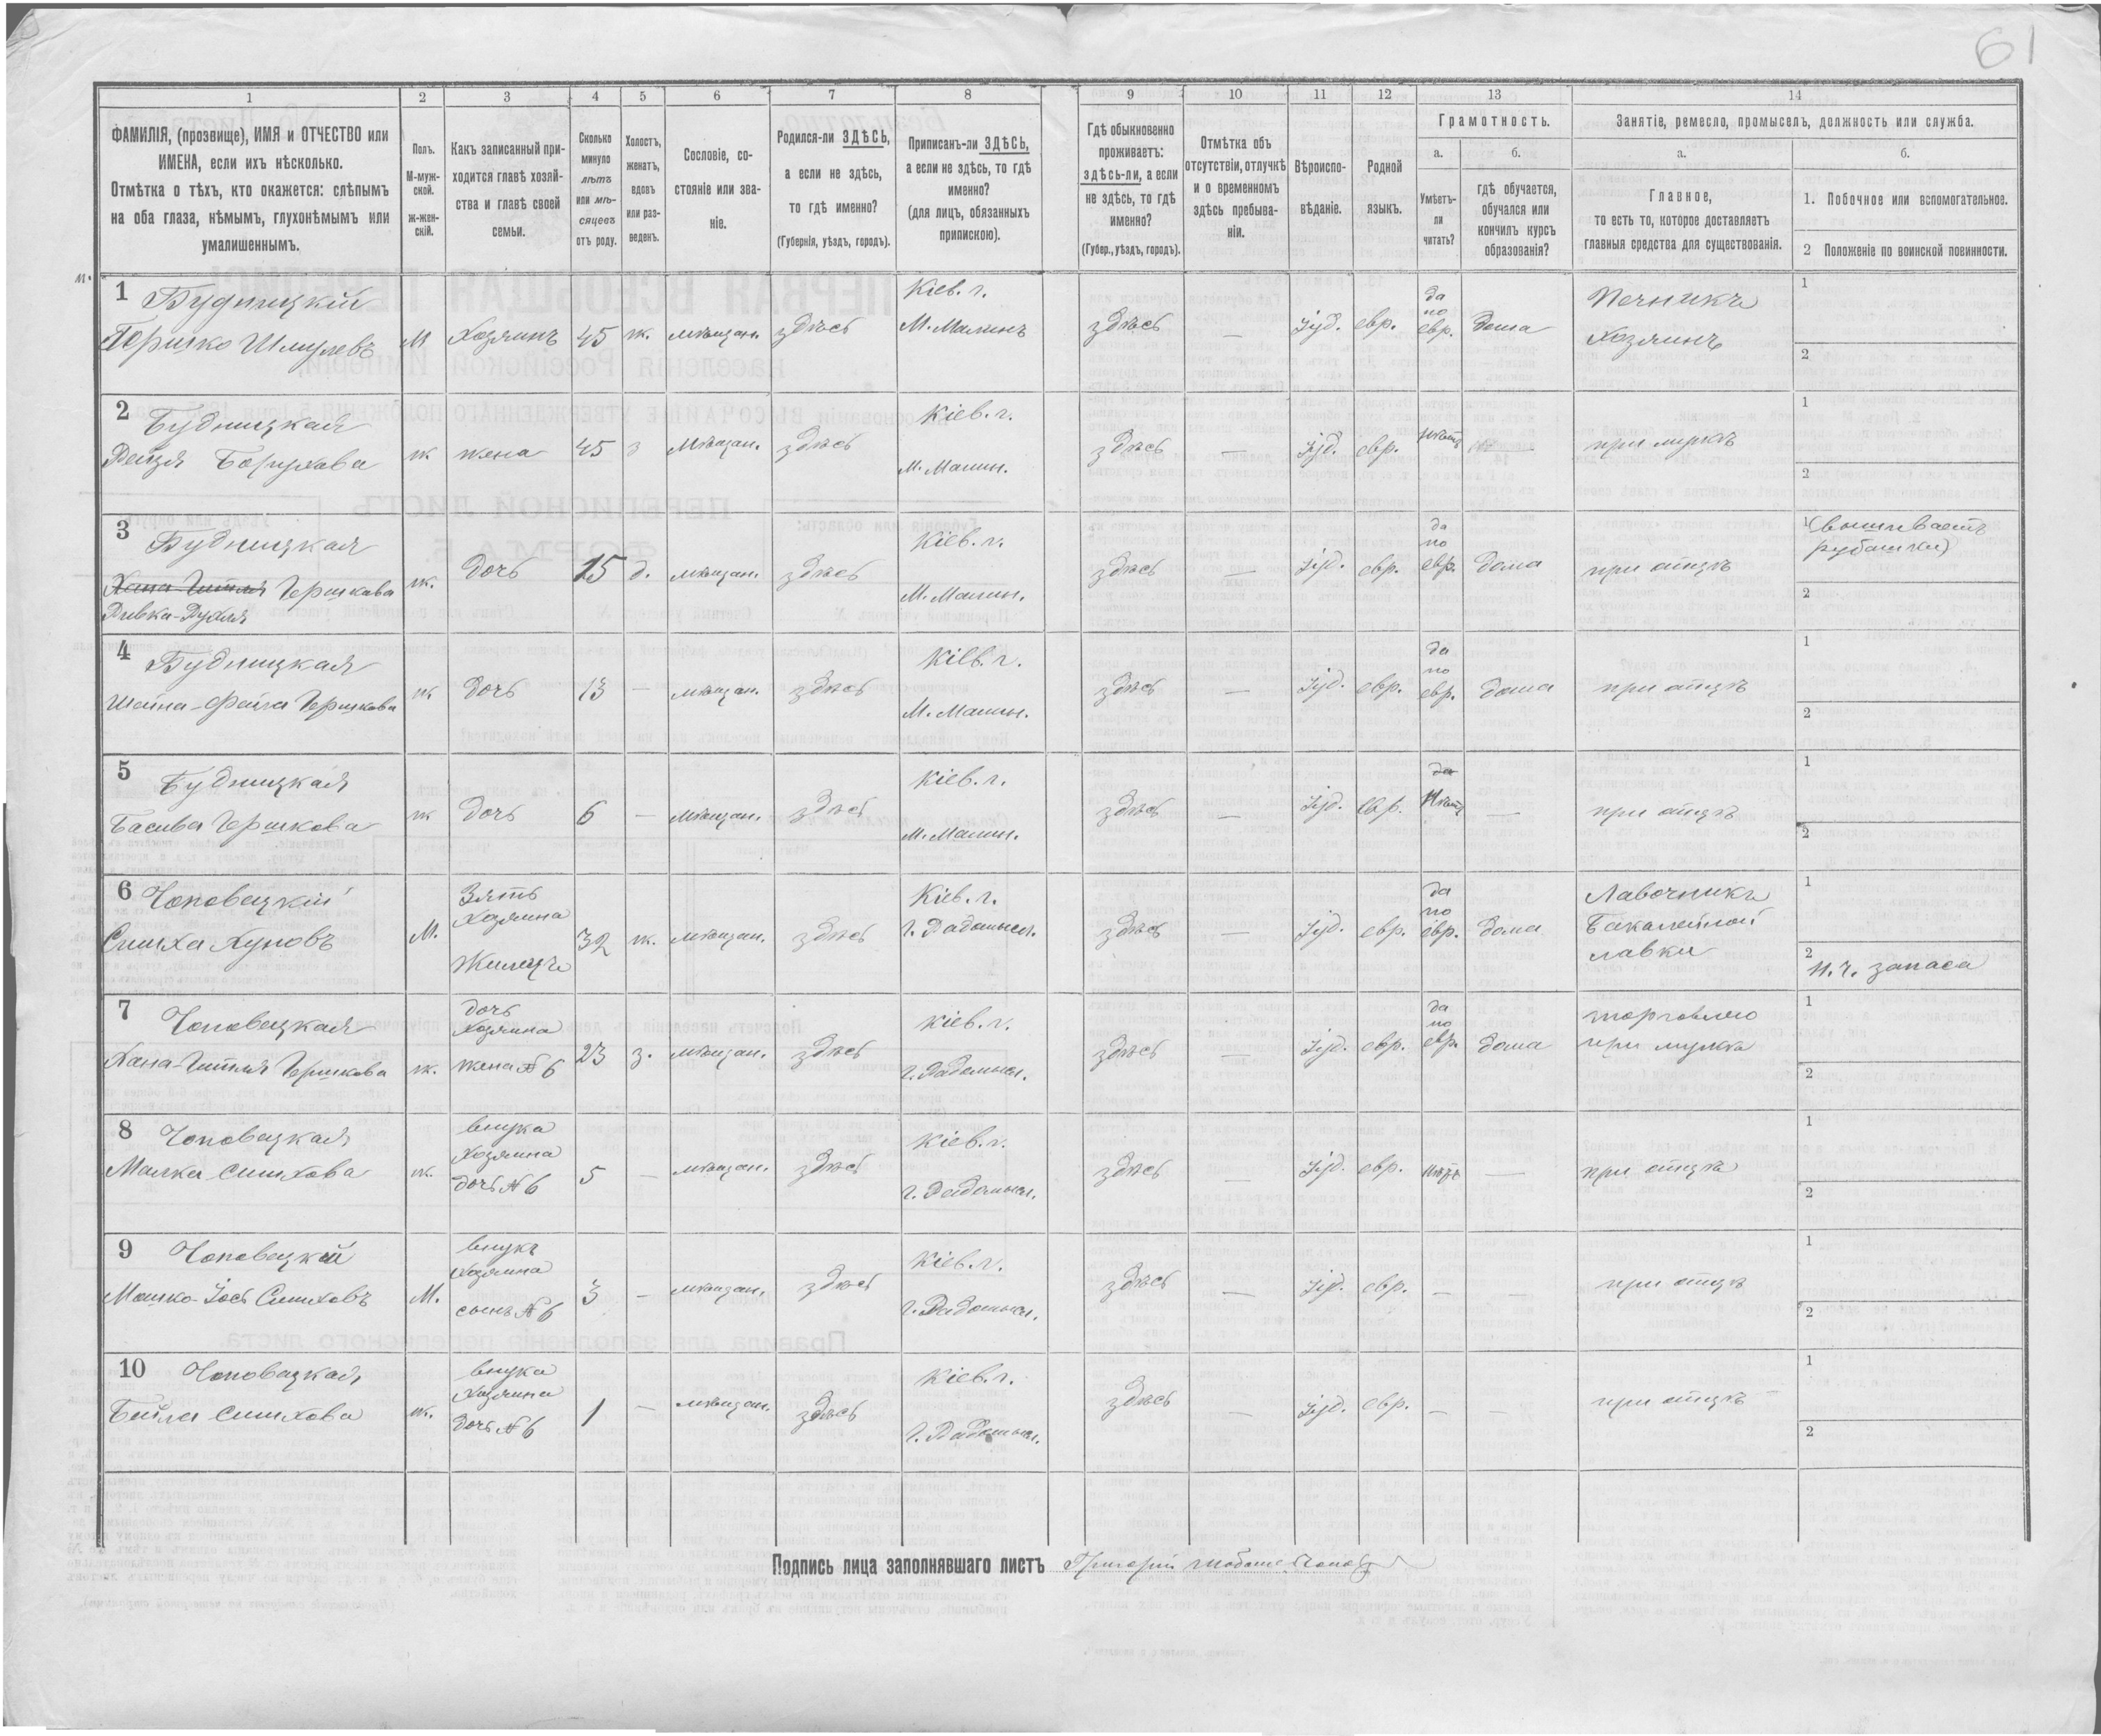 61
1 2 3 4 5 6 7 8 9 10 11 12 13 14
ФАМИЛІЯ, (прозвище), ИМЯ и ОТЧЕСТВО или
ИМЕНА, если ихъ нѣсколько.
Отмѣтка о тѣхъ, кто окажется: слѣпымъ
на оба глаза, нѣмымъ, глухонѣмымъ или
умалишеннымъ.
Полъ.
М-муж-
ской.
ж-жен-
скій.
Какъ записанный при-
ходится главѣ хозяй-
ства и главѣ своей
семьи.
Сколько
минуло
лѣтъ
или мѣ-
сяцевъ
отъ роду.
Холостъ,
женатъ,
вдовъ
или раз-
веденъ.
Сословіе, со-
стояніе или зва-
ніе.
Родился-ли ЗДѢСЬ,
а если не здѣсь,
то гдѣ именно?
(Губернія, уѣздъ, городъ).
Приписанъ-ли ЗДѢСЬ,
а если не здѣсь, то гдѣ
именно?
(для лицъ, обязанныхъ
припискою).
Гдѣ обыкновенно
проживаетъ:
здѣсь-ли, а если
не здѣсь, то гдѣ
именно?
(Губер., уѣздъ, городъ).
Отмѣтка объ
отсутствіи, отлучкѣ
и о временномъ
здѣсь пребыва-
ніи.
Вѣроиспо-
вѣданіе.
Родной
языкъ.
Грамотность.
а.
Умѣетъ-
ли
читать?
б.
гдѣ обучается,
обучался или
кончилъ курсъ
образованія?
Занятіе, ремесло, промыселъ, должность или служба.
а.
Главное,
то есть то, которое доставляетъ
главныя средства для существованія.
б.
1. Побочное или вспомогательное.
2 Положеніе по воинской повинности.
1 Будницкій
Гершко Шмулевъ
М
Хозяинъ
45
ж.
мѣщан.
здѣсь
Кіев. г.
М. Малинъ
здѣсь
—
Іуд.
евр.
да
по
евр.
дома
Печникъ
Хозяинъ
1
2
2 Будницкая
Рейзя Борухова
ж
жена
45
з
мѣщан.
здѣсь
Кіев. г.
М. Малин.
здѣсь
—
Іуд.
евр.
нѣтъ
—
при мужѣ
1
2
3 Будницкая
Хана-Гитля Гершкова
Ривка-Рухля
ж.
дочь
15
д.
мѣщан.
здѣсь
Кіев. г.
М. Малин.
здѣсь
—
Іуд.
евр.
да
по
евр.
дома
при отцѣ
1 (вышиваетъ
рубашки)
2
4 Будницкая
Шейна-Фейга Гершкова
ж
дочь
13
—
мѣщан.
здѣсь
Кіев. г.
М. Малин.
здѣсь
—
Іуд.
евр.
да
по
евр.
дома
при отцѣ
1
2
5 Будницкая
Басива Гершкова
ж
дочь
6
—
мѣщан.
здѣсь
Кіев. г.
М. Малин.
здѣсь
—
Іуд.
евр.
да
Нѣтъ
—
при отцѣ
1
2
6 Чоповецкій
Симха Хуновъ
М.
Зять
Хозяина
Жилецъ
32
ж.
мѣщан.
здѣсь
Кіев. г.
г. Радомысл.
здѣсь
—
Іуд.
евр.
да
по
евр.
дома
Лавочникъ
Бакалейной
лавки
1
2
н. ч. запаса
7 Чоповецкая
Хана-Гитля Гершкова
ж.
дочь
Хозяина
жена № 6
23
з.
мѣщан.
здѣсь
Кіев. г.
г. Радомысл.
здѣсь
—
Іуд.
евр.
да
по
евр.
дома
торговлею
при мужѣ
1
2
8 Чоповецкая
Малка Симхова
ж.
внука
Хозяина
дочь № 6
5
—
мѣщан.
здѣсь
Кіев. г.
г. Радомысл.
здѣсь
—
Іуд.
евр.
нѣтъ
—
при отцѣ
1
2
9 Чоповецкій
Мошко-Іось Симховъ
М.
внукъ
Хозяина
сынъ № 6
3
—
мѣщан.
здѣсь
Кіев. г.
г. Радомысл.
здѣсь
—
Іуд.
евр.
—
—
при отцѣ
1
2
10 Чоповецкая
Бейла Симхова
ж.
внука
Хозяина
дочь № 6
1
—
мѣщан.
здѣсь
Кіев. г.
г. Радомысл.
здѣсь
—
Іуд.
евр.
—
—
при отцѣ
1
2
Подпись лица заполнявшаго листъ Григорій